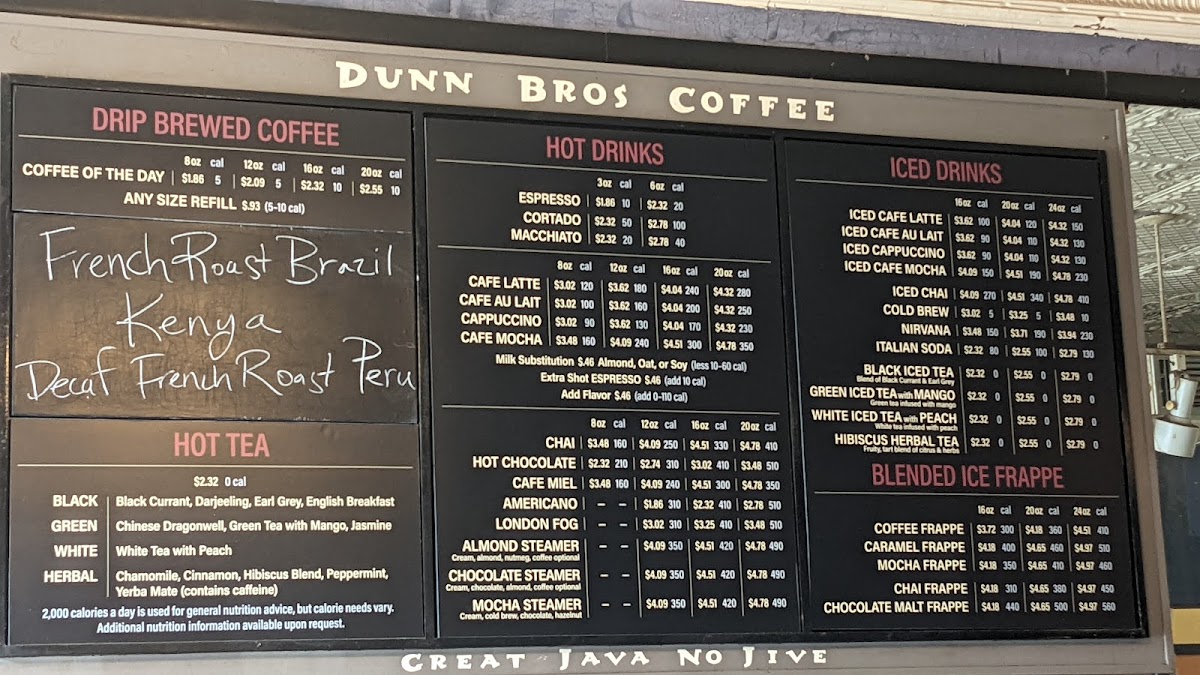 DUNN BROS COFFEE
DRIP BREWED COFFEE
8oz cal 12oz cal 16oz cal 20oz cal
COFFEE OF THE DAY $1.86 5 $2.09 5 $2.32 10 $2.55 10
ANY SIZE REFILL $.93 (5-10 cal)
French Roast Brazil
Kenya
Decaf French Roast Peru
HOT TEA
$2.32 0 cal
BLACK Black Currant, Darjeeling, Earl Grey, English Breakfast
GREEN Chinese Dragonwell, Green Tea with Mango, Jasmine
WHITE White Tea with Peach
HERBAL Chamomile, Cinnamon, Hibiscus Blend, Peppermint,
Yerba Mate (contains caffeine)
2,000 calories a day is used for general nutrition advice, but calorie needs vary.
Additional nutrition information available upon request.
HOT DRINKS
3oz cal 6oz cal
ESPRESSO $1.86 10 $2.32 20
CORTADO $2.32 50 $2.78 100
MACCHIATO $2.32 20 $2.78 40
8oz cal 12oz cal 16oz cal 20oz cal
CAFE LATTE $3.02 120 $3.62 180 $4.04 240 $4.32 280
CAFE AU LAIT $3.02 100 $3.62 160 $4.04 200 $4.32 250
CAPPUCCINO $3.02 90 $3.62 130 $4.04 170 $4.32 230
CAFE MOCHA $3.48 160 $4.09 240 $4.51 300 $4.78 350
Milk Substitution $.46 Almond, Oat, or Soy (less 10-60 cal)
Extra Shot ESPRESSO $.46 (add 10 cal)
Add Flavor $.46 (add 0-110 cal)
8oz cal 12oz cal 16oz cal 20oz cal
CHAI $3.48 160 $4.09 250 $4.51 330 $4.78 410
HOT CHOCOLATE $2.32 210 $2.74 310 $3.02 410 $3.48 510
CAFE MIEL $3.48 160 $4.09 240 $4.51 300 $4.78 350
AMERICANO – – $1.86 310 $2.32 410 $2.78 510
LONDON FOG – – $3.02 310 $3.25 410 $3.48 510
ALMOND STEAMER – – $4.09 350 $4.51 420 $4.78 490
Cream, almond, nutmeg, coffee optional
CHOCOLATE STEAMER – – $4.09 350 $4.51 420 $4.78 490
Cream, chocolate, almond, coffee optional
MOCHA STEAMER – – $4.09 350 $4.51 420 $4.78 490
Cream, cold brew, chocolate, hazelnut
ICED DRINKS
16oz cal 20oz cal 24oz cal
ICED CAFE LATTE $3.62 100 $4.04 120 $4.32 150
ICED CAFE AU LAIT $3.62 90 $4.04 110 $4.32 130
ICED CAPPUCCINO $3.62 90 $4.04 110 $4.32 130
ICED CAFE MOCHA $4.09 150 $4.51 190 $4.78 230
ICED CHAI $4.09 270 $4.51 340 $4.78 410
COLD BREW $3.02 5 $3.25 5 $3.48 10
NIRVANA $3.48 150 $3.71 190 $3.94 230
ITALIAN SODA $2.32 80 $2.55 100 $2.79 130
BLACK ICED TEA $2.32 0 $2.55 0 $2.79 0
Blend of Black Currant & Earl Grey
GREEN ICED TEA with MANGO $2.32 0 $2.55 0 $2.79 0
Green tea infused with mango
WHITE ICED TEA with PEACH $2.32 0 $2.55 0 $2.79 0
White tea infused with peach
HIBISCUS HERBAL TEA $2.32 0 $2.55 0 $2.79 0
Fruity, tart blend of citrus & herbs
BLENDED ICE FRAPPE
16oz cal 20oz cal 24oz cal
COFFEE FRAPPE $3.72 300 $4.18 360 $4.51 410
CARAMEL FRAPPE $4.18 400 $4.65 460 $4.97 510
MOCHA FRAPPE $4.18 350 $4.65 410 $4.97 460
CHAI FRAPPE $4.18 310 $4.65 380 $4.97 450
CHOCOLATE MALT FRAPPE $4.18 440 $4.65 500 $4.97 560
GREAT JAVA NO JIVE